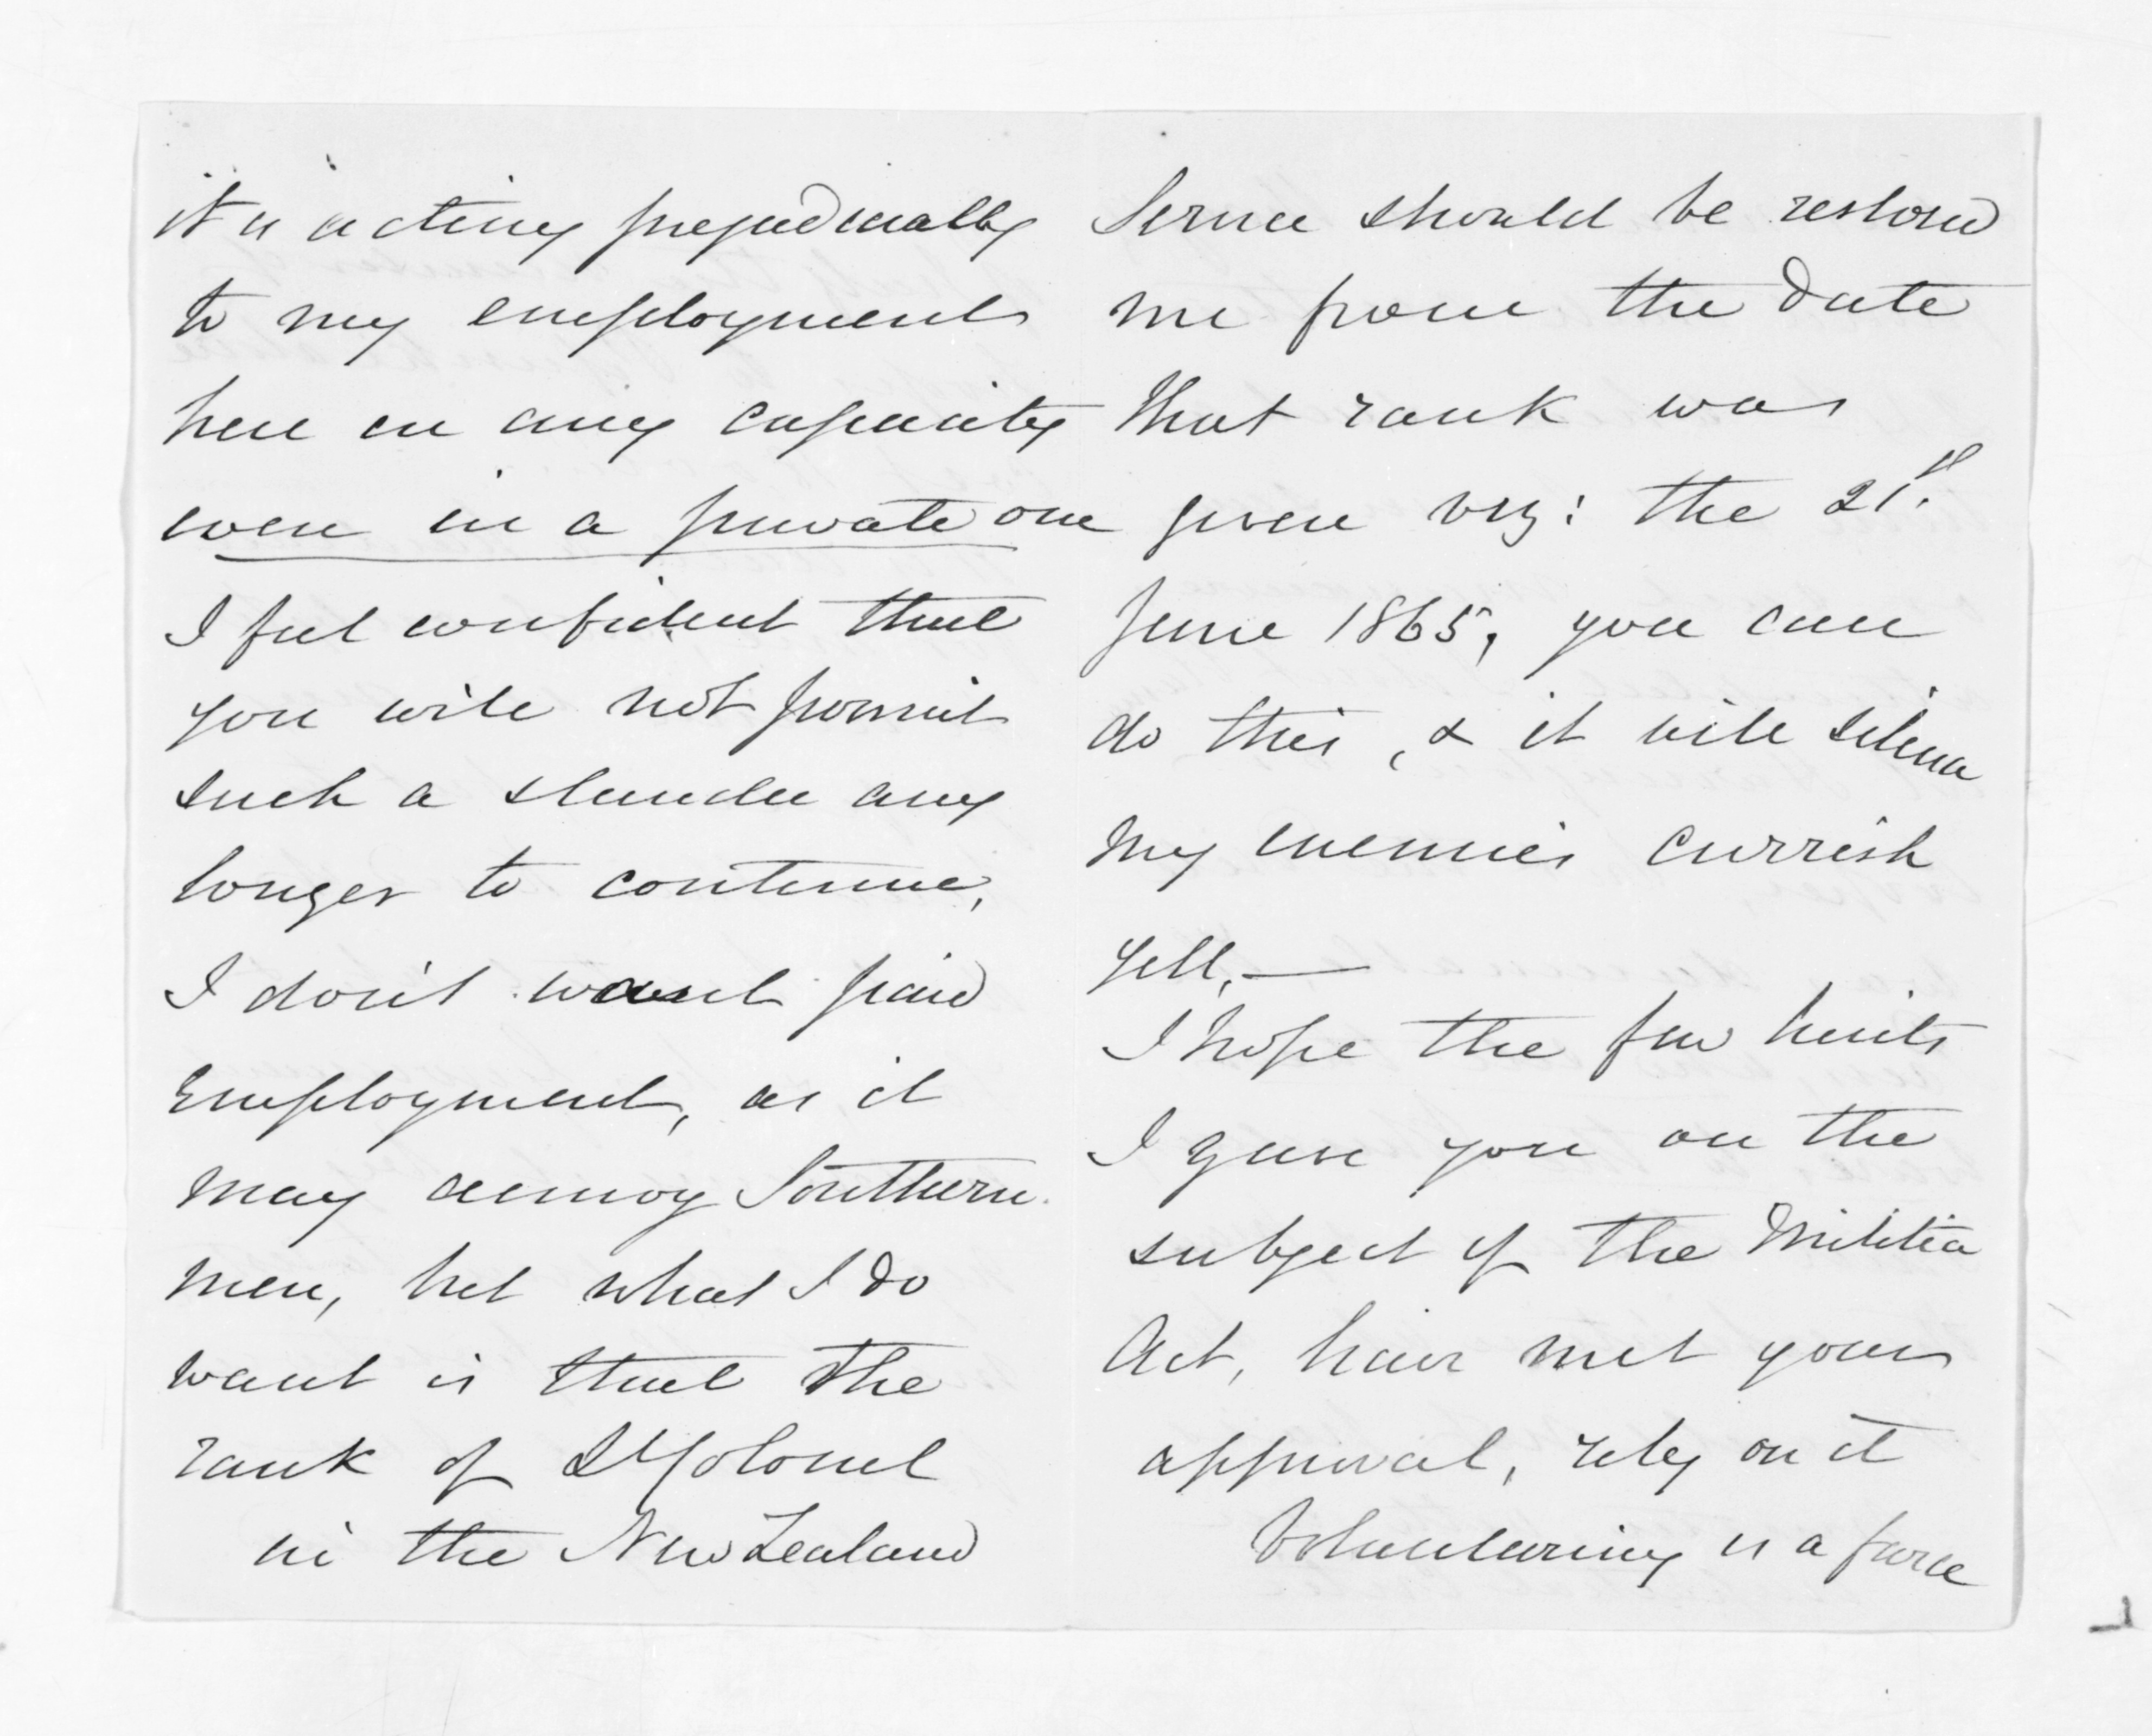 it is acting prejudicially
to my employment
here in any capacity
even in a private one
I feel confident that
you will not permit
such a slander any
longer to continue,
I don't want paid
employment, as it
may annoy Southern
men, but what I do
want is that the
rank of Lt Colonel
in the New Zealand
Service should be restored
me from the date
that rank was
given viz: the 21st
June 1865, you can
do this, & it will silence
my enemies currish
yell, —
I hope the few hints
I gave you on the
subject of the Militia
Act, have met your
approval, rely on it
Volunteering is a farce